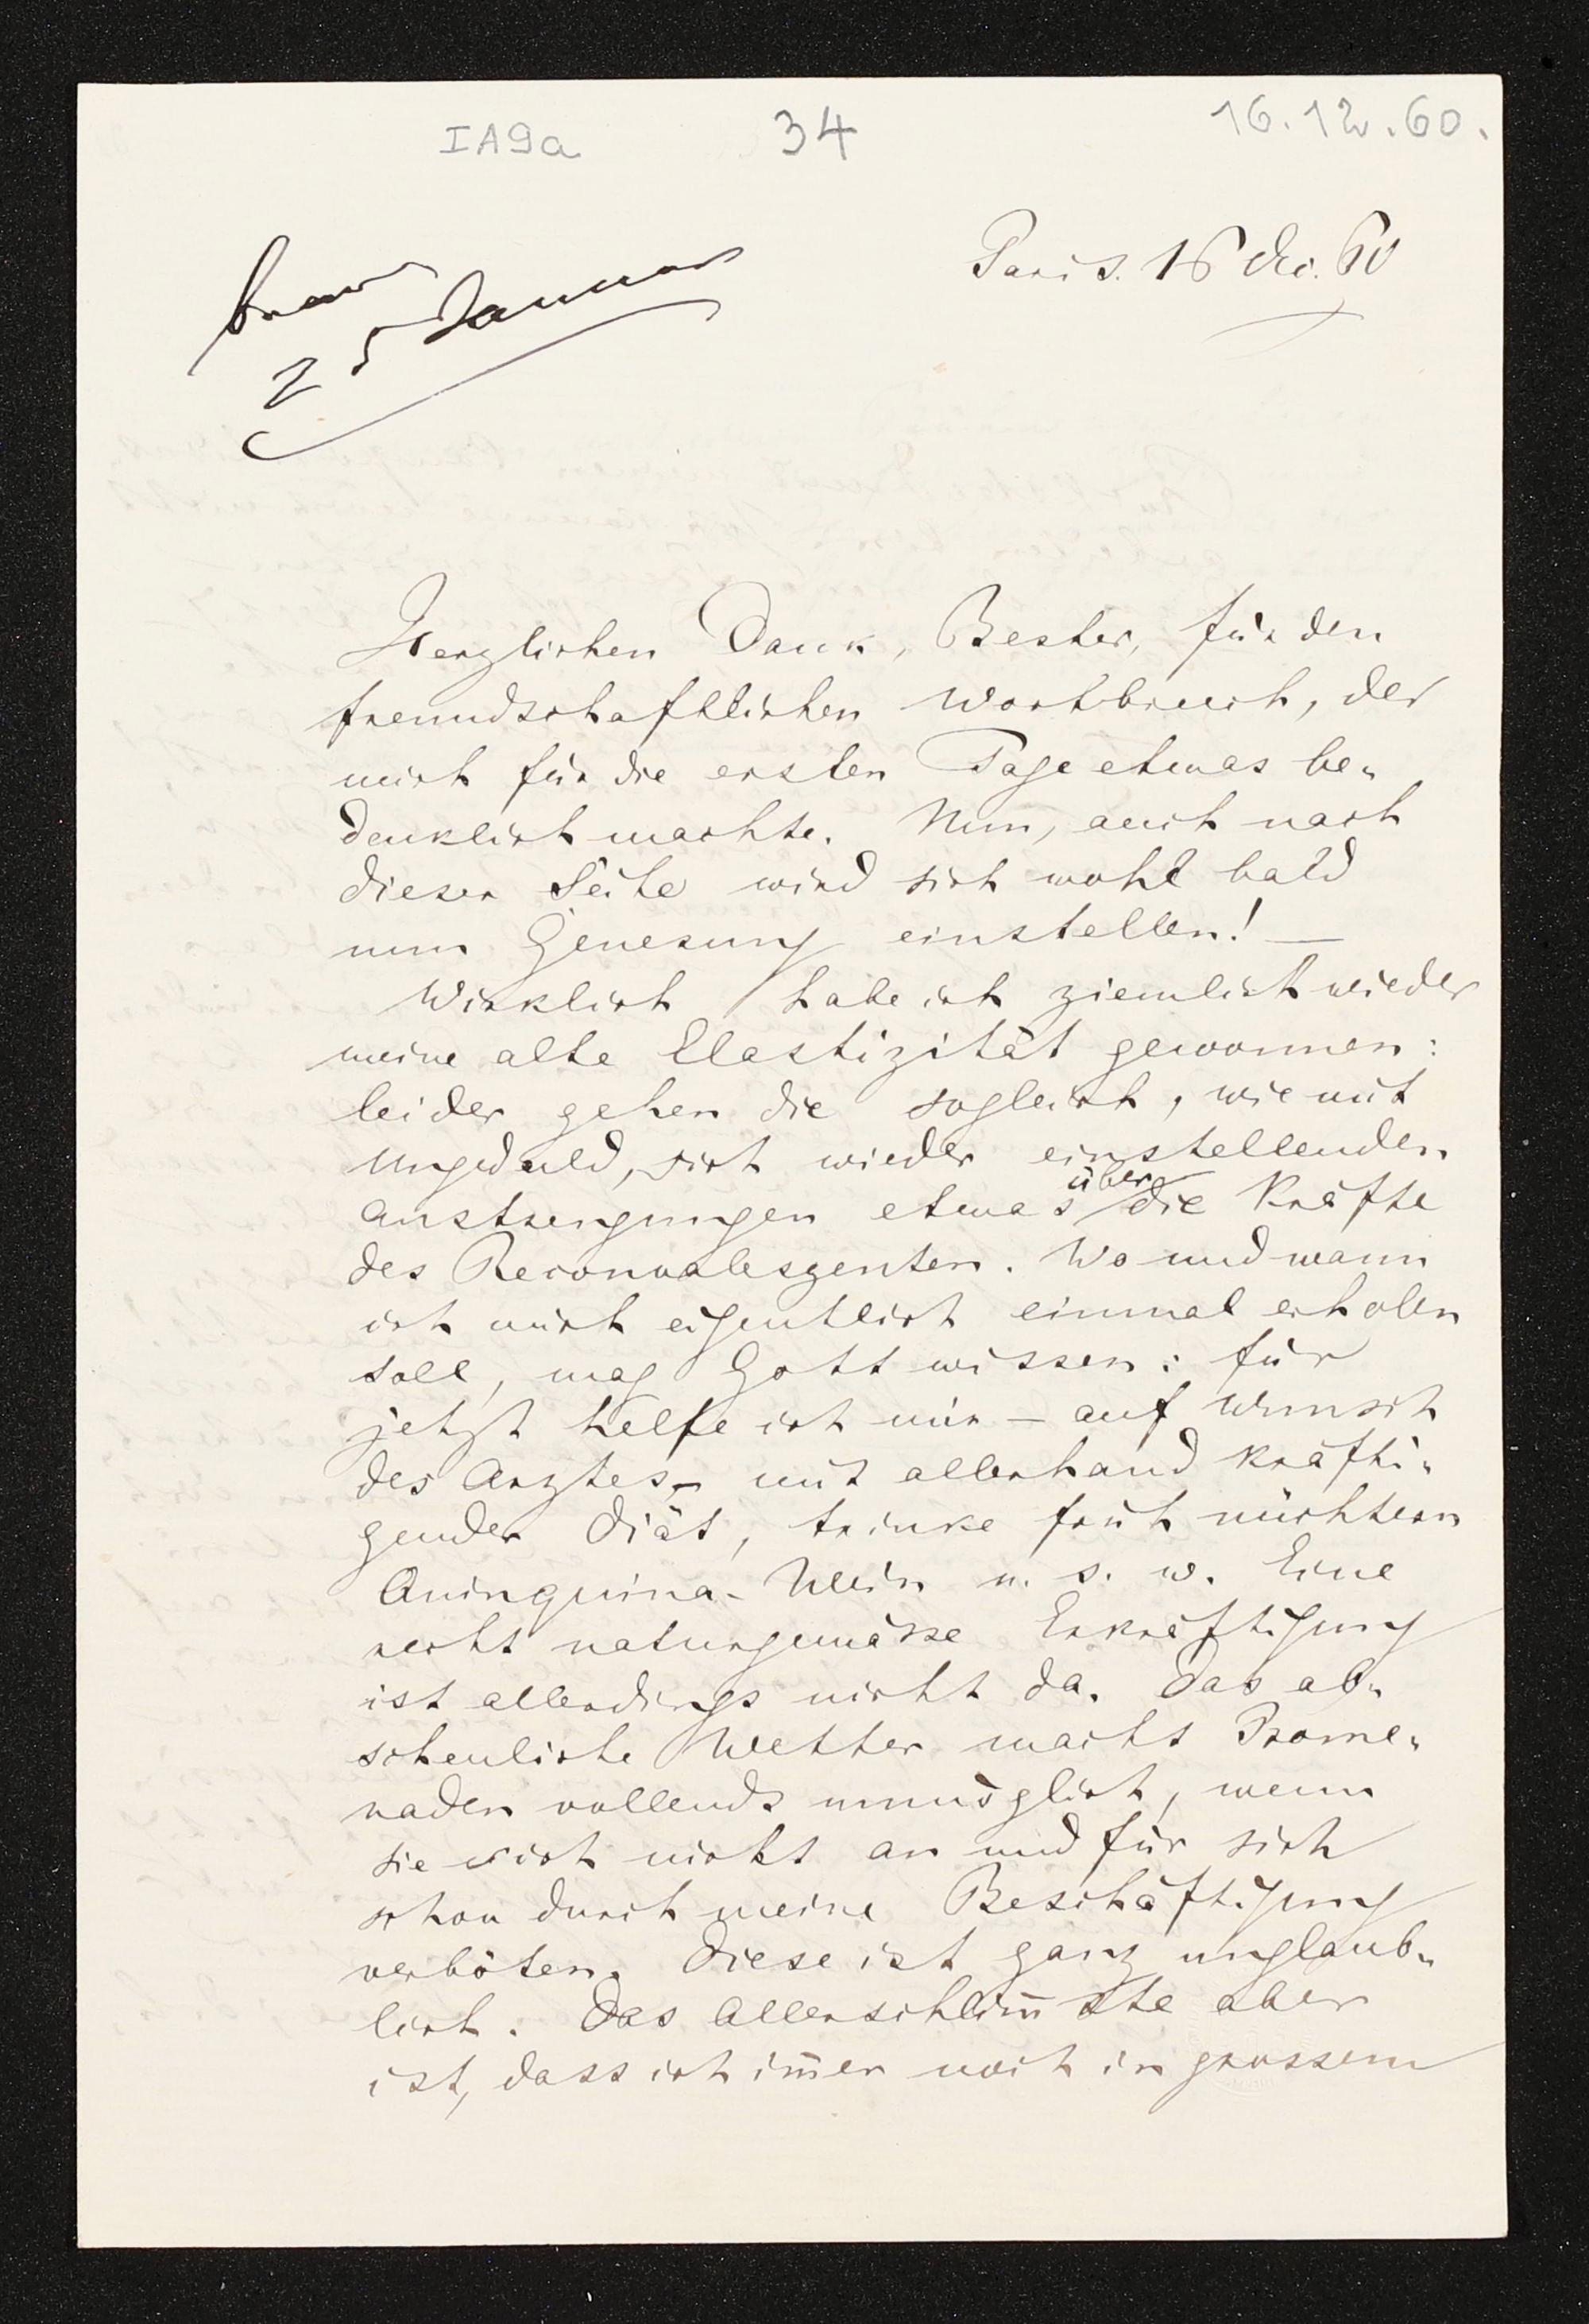 IA9a 34 16.12.60.
Paris. 16 Dec. 60
25 Januar
Herzlichen Dank, Bester, für den
freundschaftlichen Wortbruch, der
mich für die ersten Tage etwas be-
denklich machte. Nun, auch nach
dieser Seite wird sich wohl bald
nun Genesung einstellen! —
Wirklich habe ich ziemlich wieder
meine alte Elastizität gewonnen:
leider gehen die sogleich, wie mit
Ungeduld, sich wieder einstellenden
Anstrengungen etwas über die Kräfte
des Reconvaleszenten. Wo und wann
ich mich eigentlich einmal erholen
soll, mag Gott wissen: für
jetzt helfe ich mir – auf Wunsch
des Arztes – mit allerhand kräfti-
gender Diät, trinke früh nüchtern
Quinquina-Wein u. s. w. Eine
recht naturgemässe Erkräftigung
ist allerdings nicht da. Das ab-
scheuliche Wetter macht Prome-
naden vollends unmöglich, wenn
sie sich nicht an und für sich
schon durch meine Beschäftigung
verböten. Diese ist ganz unglaub-
lich. Das Allerschlim̅ste aber
ist, dass ich im̅er noch in grossem